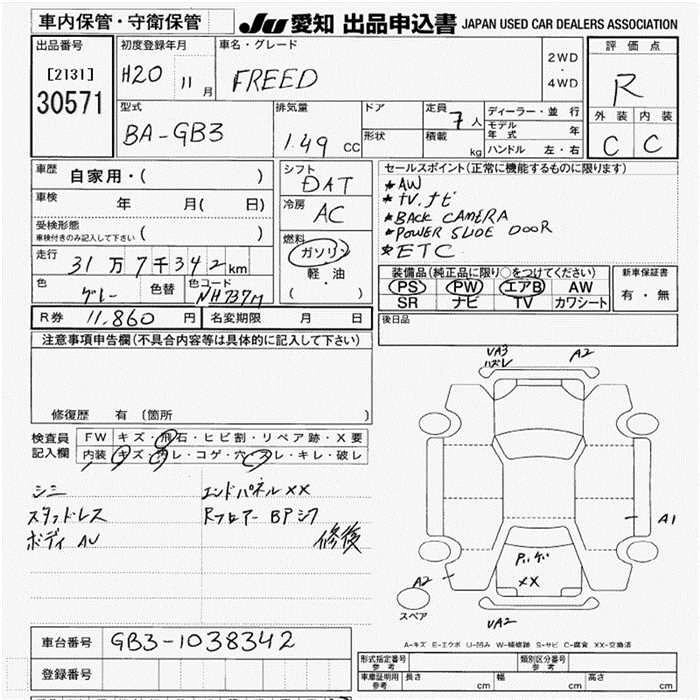 車内保管・守衛保管
JU 愛知 出品申込書 JAPAN USED CAR DEALERS ASSOCIATION
出品番号
[2131]
30571
初度登録年月
H20 11 月
車名・グレード
FREED
2WD
・
4WD
評価点
R
外装 内装
C C
型式
BA-GB3
排気量
1.49 CC
ドア
形状
定員
7 人
積載
kg
ディーラー・並行
モデル年式 年
ハンドル 左・右
車歴
自家用・( )
車検
年 月( 日)
受検形態
車検付きのみ記入して下さい ( )
走行
31万7千342km
色
グレー
色替
色コード
NH737M
シフト
DAT
冷房
AC
燃料
ガソリン
軽・油
( )
セールスポイント(正常に機能するものに限ります)
*AW
*TV.ナビ
*BACK CAMERA
*POWER SLIDE DOOR
*ETC
装備品(純正品に限り○をつけてください)
PS PW エアB AW
SR ナビ TV カワシート
新車保証書
有・無
R券 11,860 円
名変期限 月 日
後日品
注意事項申告欄(不具合内容等は具体的に記入して下さい)
修復歴 有 〔箇所 〕
検査員
記入欄
FW キズ・飛石・ヒビ割・リペア跡・X要
内装 キズ・汚レ・コゲ・穴・スレ・キレ・破レ
シミ
スタッドレス
ボディ AU
エンドパネルXX
Rフロアー BPシワ
修復
VA3
ハズレ
A2
A1
バッゲ
XX
A2
VA2
スペア
A-キズ E-エクボ U-凹み W-補修跡 S-サビ C-腐食 XX-交換済
車台番号
GB3-1038342
登録番号
形式指定番号
参考
類別区分番号
参考
車庫証明用
参考
長さ cm
幅 cm
高さ cm